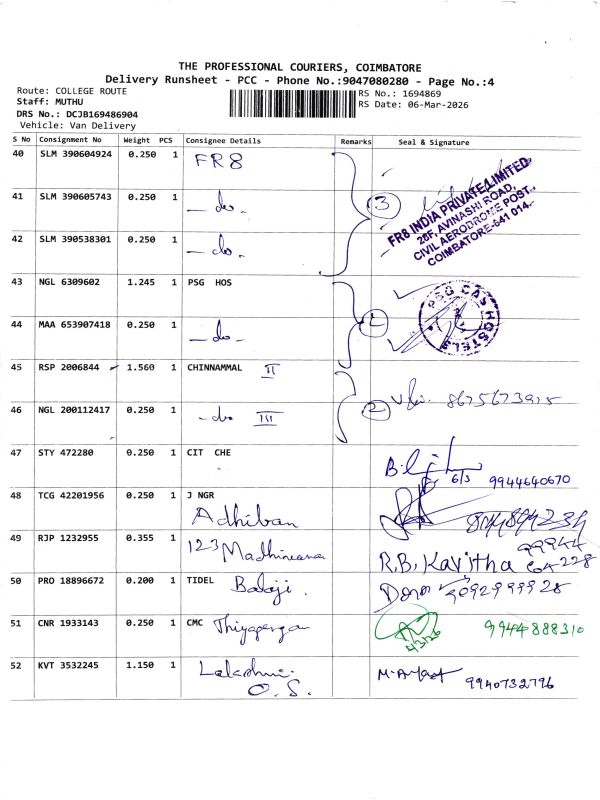 THE PROFESSIONAL COURIERS, COIMBATORE
Delivery Runsheet - PCC - Phone No.:9047080280 - Page No.:4
Route: COLLEGE ROUTE
Staff: MUTHU
DRS No.: DCJB169486904
Vehicle: Van Delivery
RS No.: 1694869
RS Date: 06-Mar-2026
S No Consignment No Weight PCS Consignee Details Remarks Seal & Signature
40 SLM 390604924 0.250 1 FR8
41 SLM 390605743 0.250 1 - do -
3
42 SLM 390538301 0.250 1 - do -
FR8 INDIA PRIVATE LIMITED
28F, AVINASHI ROAD,
CIVIL AERODROME POST,
COIMBATORE-641 014.
43 NGL 6309602 1.245 1 PSG HOS
44 MAA 653907418 0.250 1 - do -
PSG CAS HOSTELS
45 RSP 2006844 1.560 1 CHINNAMMAL II
46 NGL 200112417 0.250 1 - do III
2
8675673915
47 STY 472280 0.250 1 CIT CHE
6/3 9944640670
48 TCG 42201956 0.250 1 J NGR
Adhiban
49 RJP 1232955 0.355 1 123
R.B. Kavitha
50 PRO 18896672 0.200 1 TIDEL Balaji.
51 CNR 1933143 0.250 1 CMC
9944888310
52 KVT 3532245 1.150 1 Lakshmi
O.S.
9940732796